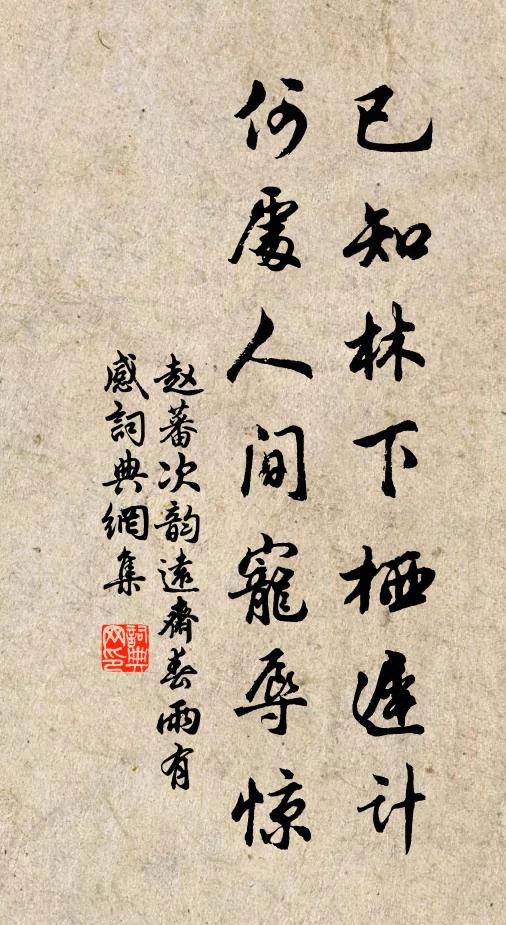 已知林下栖遲计
何處人间寵辱惊
赵蕃次韵遠齋春雨有
感詞典網集
詞典
网印